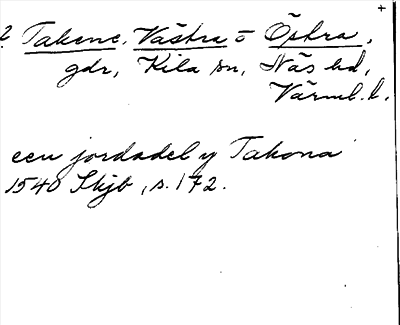 +
? Takene, Västra o Östra,
gdr, Kila sn, Näs hd,
Värml. l.
een jordadel y Takona
1540 Skjb, s. 172.